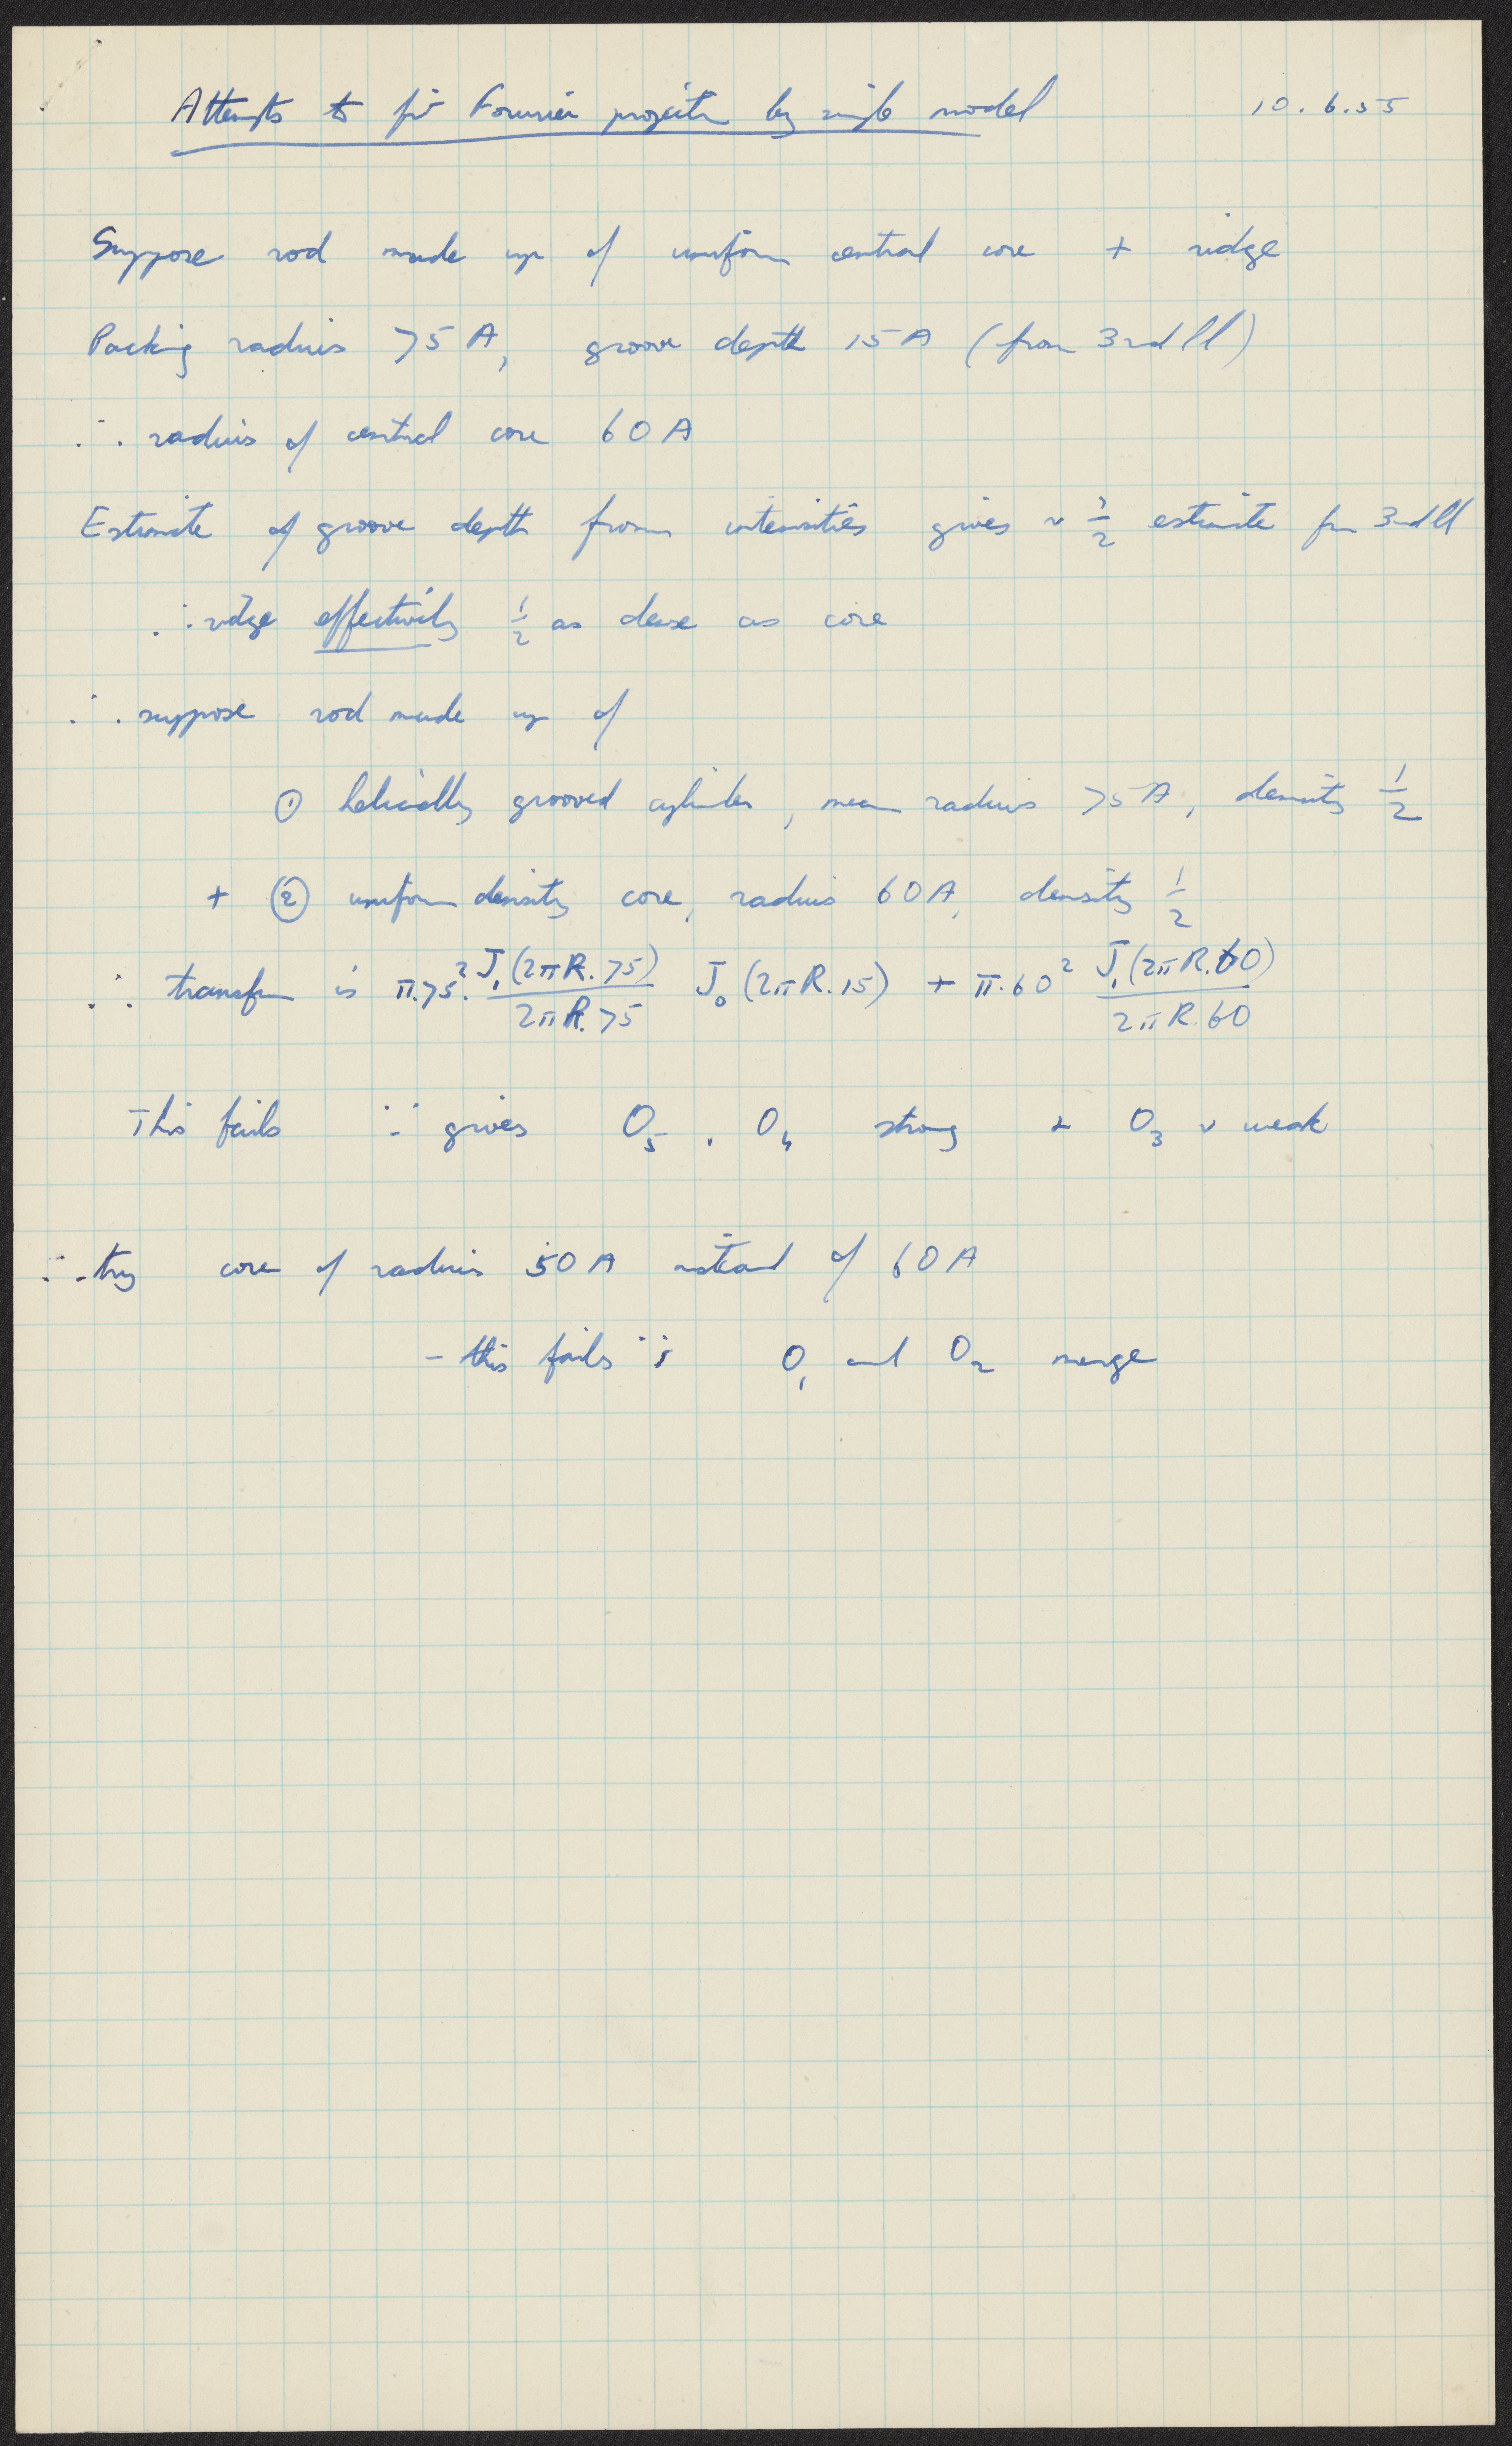 Attempts to fit Fourier projectn by single model 10.6.55
Suppose rod made up of uniform central core + ridge
Packing radius 75 A, groove depth 15 A (from 3rd ll)
∴ radius of central core 60 A
Estimate of groove depth from intensities gives ~ 1/2 estimate from 3rd ll
∴ ridge effectively 1/2 as dense as core
∴ suppose rod made up of
① helically grooved cylinder, mean radius 75 A, density 1/2
+ ② uniform density core, radius 60 A, density 1/2
∴ transfm is π.75². J₁(2πR.75)/2πR.75 J₀(2πR.15) + π.60² J₁(2πR.60)/2πR.60
This fails ∵ gives O₅, O₄ strong + O₃ v weak
∴ try core of radius 50 A instead of 60 A
- this fails ∵ O₁ and O₂ merge